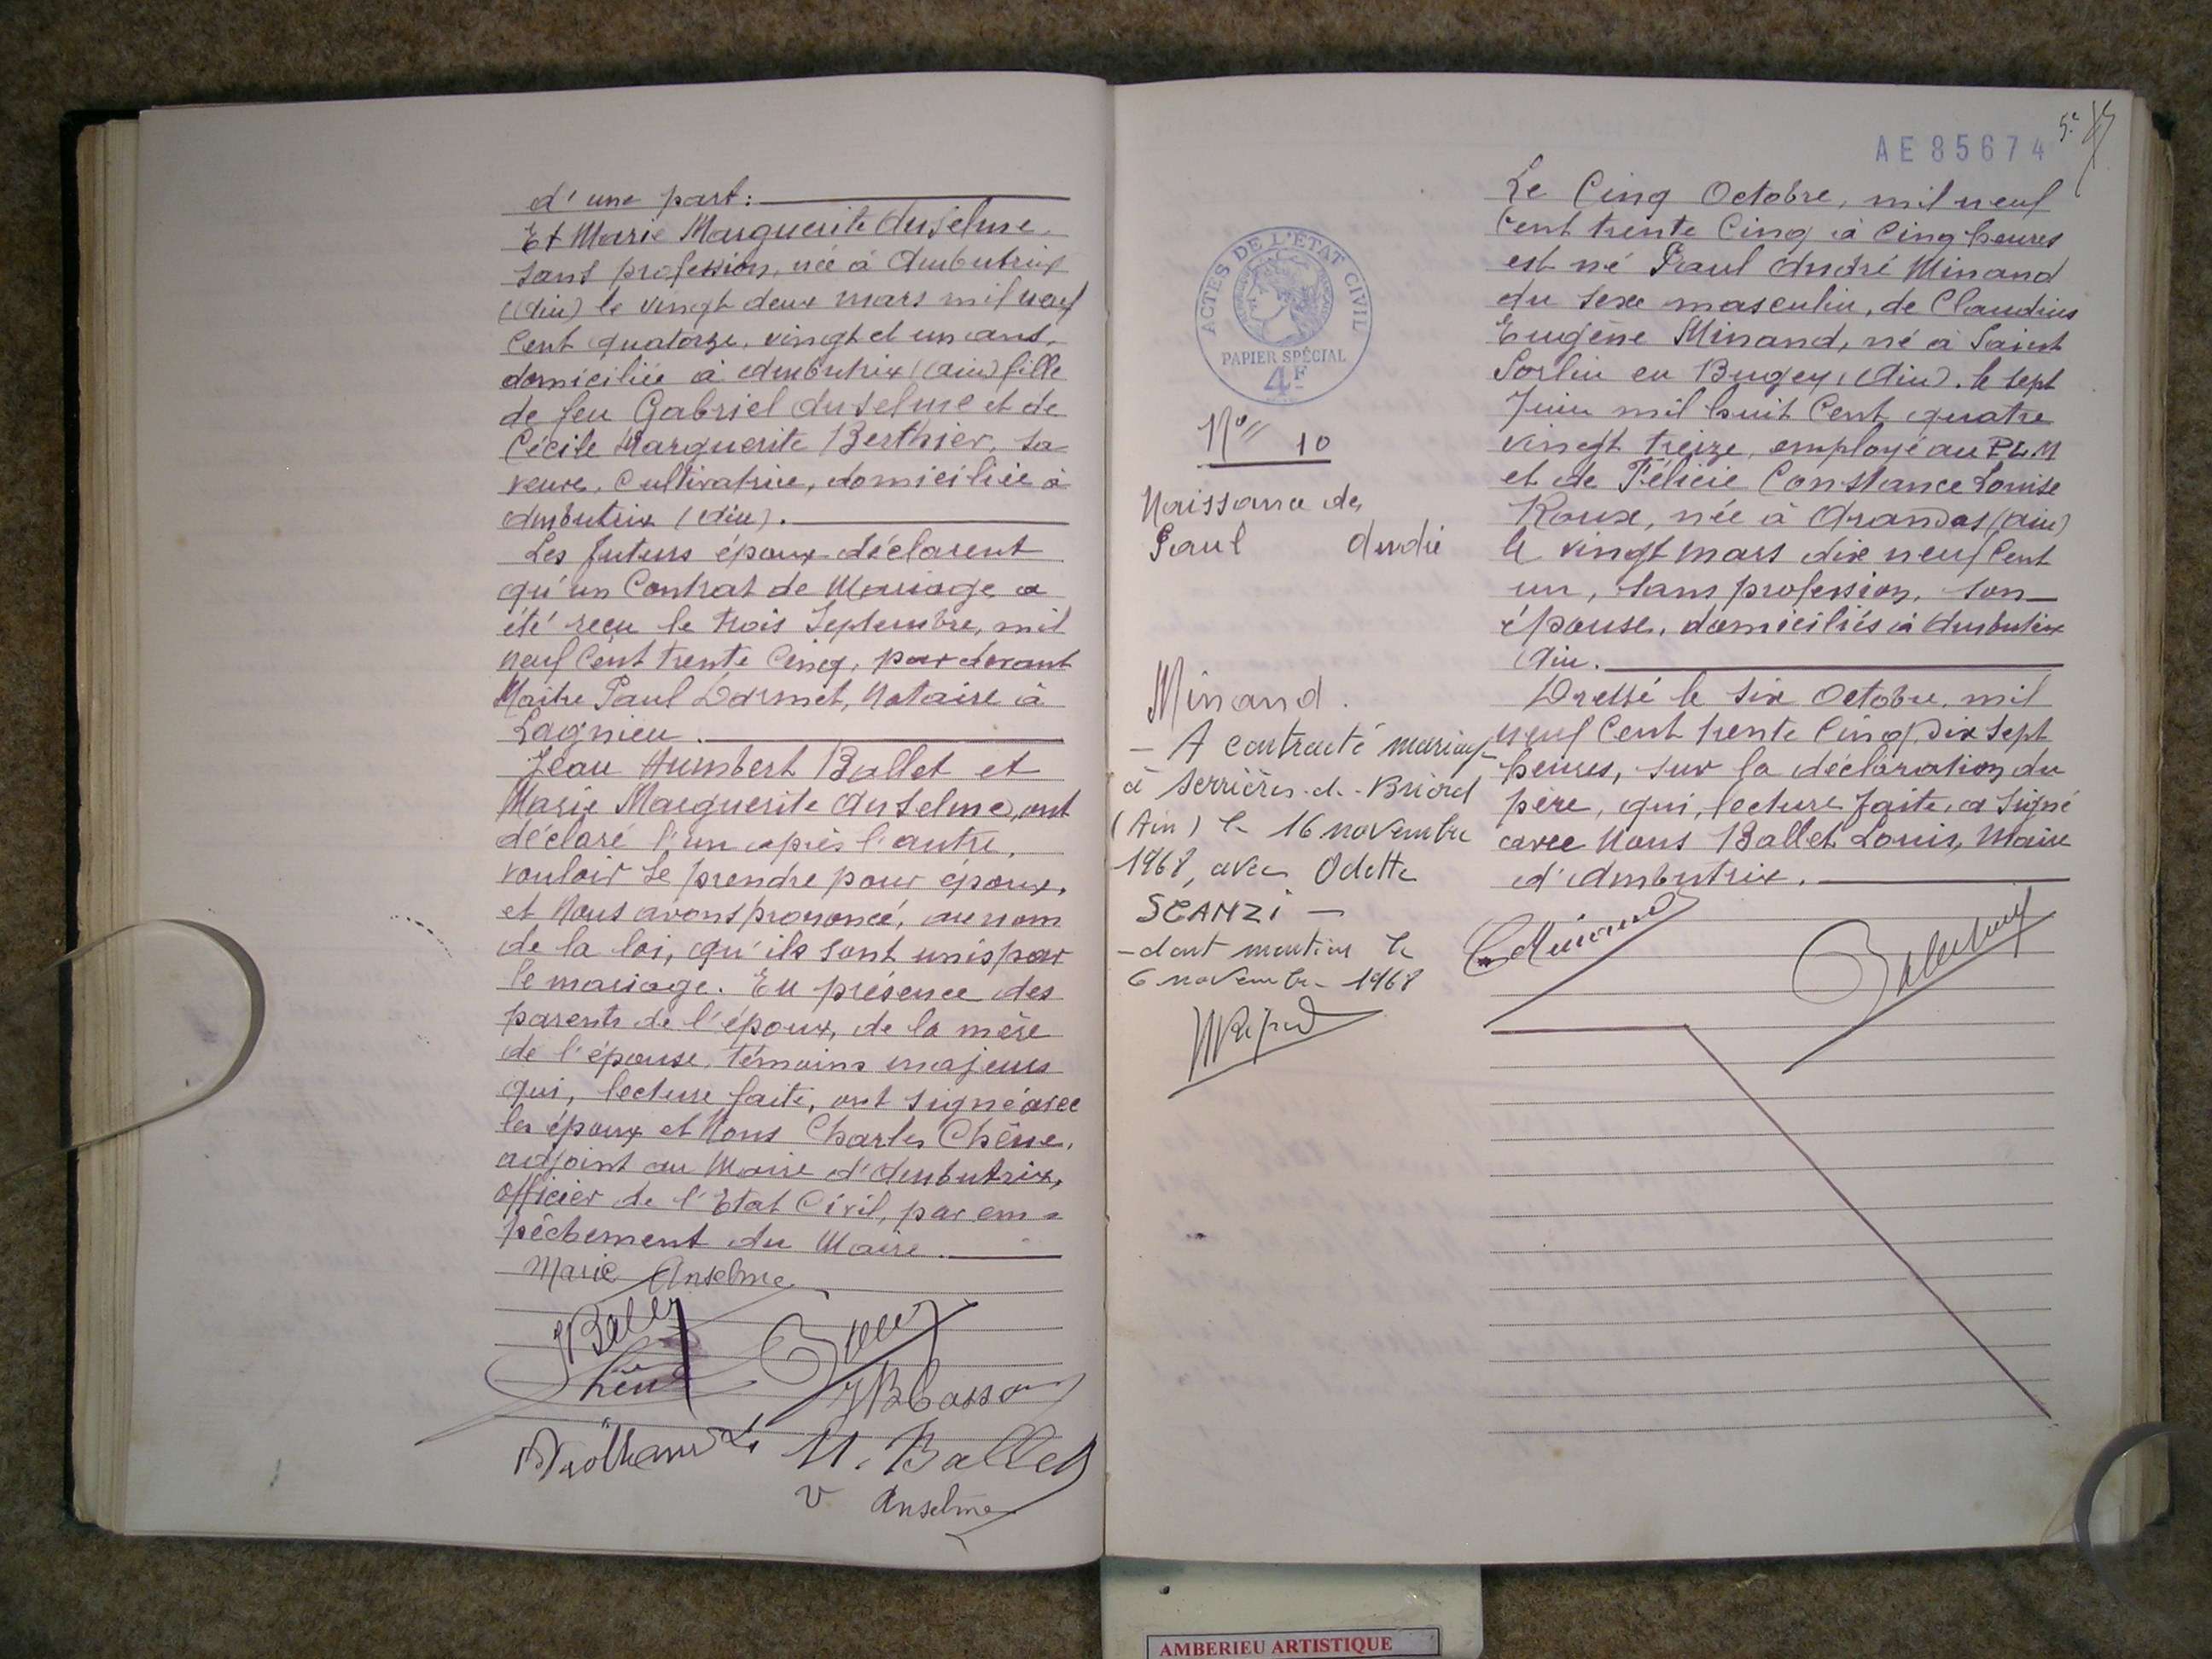 d'une part:
Et Marie Marguerite Anselme,
sans profession, née à Ambutrix
(Ain) le vingt deux mars mil neuf
Cent quatorze, vingt et un ans,
domiciliée à Ambutrix (Ain) fille
de feu Gabriel Anselme et de
Cécile Marguerite Berthier, sa
veuve, Cultivatrice, domiciliée à
Ambutrix (Ain).
Les futurs époux déclarent
qu'un Contrat de Mariage a
été reçu le trois Septembre, mil
neuf Cent trente Cinq, par devant
Maître Paul Dormet, Notaire à
Lagnieu.
Jean Humbert Ballet et
Marie Marguerite Anselme, ont
déclaré l'un après l'autre,
vouloir se prendre pour époux,
et Nous avons prononcé, au nom
de la loi, qu'ils sont unis par
le mariage. En présence des
parents de l'époux, de la mère
de l'épouse, témoins majeurs
qui, lecture faite, ont signé avec
les époux et Nous Charles Chêne,
adjoint au Maire d'Ambutrix,
Officier de l'Etat Civil, par em-
pêchement du Maire.
Marie Anselme
JBallet
Chêne
M. Ballet
V Anselme
AE85674
5e
ACTES DE L'ETAT CIVIL
PAPIER SPÉCIAL
4F
No 10
Naissance de
Paul André
Minand.
- A contracté mariage
à Serrières-de-Briord
(Ain) le 16 novembre
1968, avec Odette
SCANZI -
- dont mention le
6 novembre 1968
Le Cinq Octobre, mil neuf
Cent trente Cinq à Cinq heures
est né Paul André Minand
du sexe masculin, de Claudius
Eugène Minand, né à Saint
Sorlin en Bugey, (Ain), le sept
Juin mil huit Cent quatre
vingt treize, employé au PLM
et de Félicie Constance Louise
Roux, née à Arandas (Ain)
le vingt mars dix neuf Cent
un, sans profession, son
épouse, domiciliés à Ambutrix
Ain.
Dressé le six Octobre, mil
neuf Cent trente Cinq dix sept
heures, sur la déclaration du
père, qui, lecture faite, a signé
avec Nous Ballet Louis, Maire
d'Ambutrix.
C Minand
Ballet Louis
AMBERIEU ARTISTIQUE